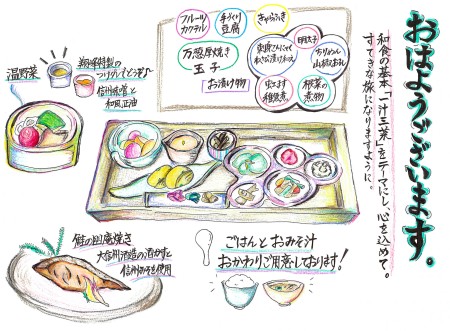 おはようございます。
和食の基本「一汁三菜」をテーマにし、心を込めて。
すてきな旅になりますように。
フルーツ
カクテル
手づくり
豆腐
きゃらぶき
万葱厚焼き
玉子
お漬け物
明太子
ちりめん
山椒おろし
根菜の
煮物
温野菜
つけダレでどうぞ
信州味噌と
和風正油
鮭の四庵焼き
大信州酒造の酒かすと
信州みそを使用
ごはんとおみそ汁
おかわりご用意しております!